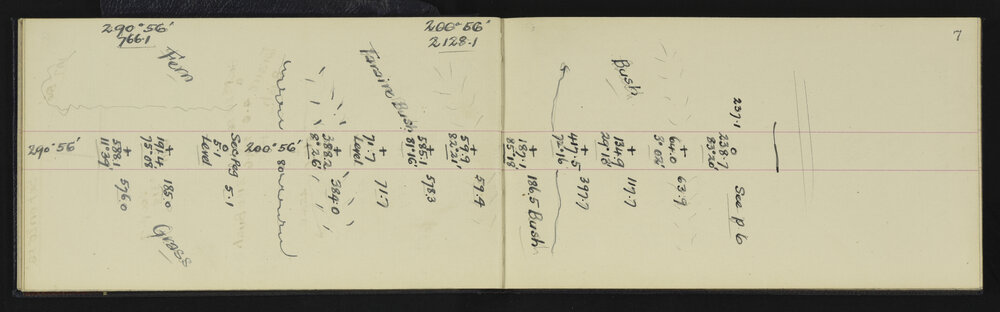 7
237.1
238.7
83°20'
See p 6
64.0
3°06'
63.9
Bush
134.9
29°18'
117.7
417.5
72°16'
397.7
187.1
85°18'
186.5 Bush
200°56'
2128.1
59.9
82°21'
59.4
585.1
81°16'
578.3
Bush
71.7
Level
71.7
388.2
8°26'
384.0
200°56'
5.1
Level
5.1
Fern
191.4
75°08'
185.0
Grass
290°56'
766.1
588.1
11°39'
576.0
290°56'